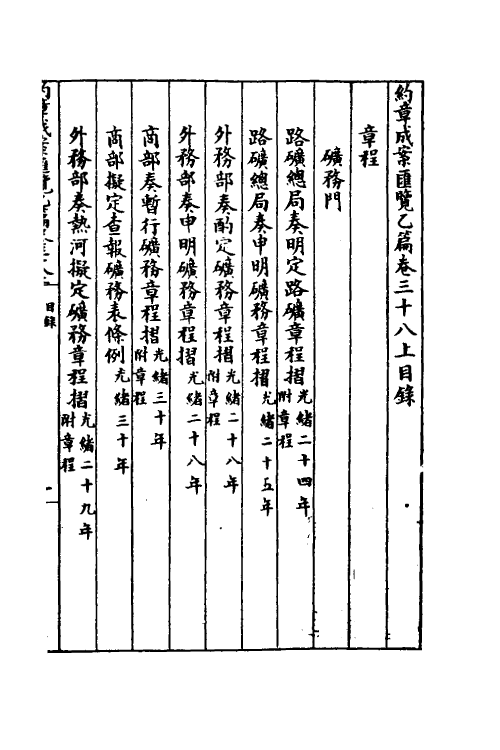 約章成案匯覽乙篇卷三十八上目錄
章程
礦務門
路礦總局奏明定路礦章程摺光緒二十四年附章程
路礦總局奏申明礦務章程摺光緒二十五年
外務部奏酌定礦務章程摺光緒二十八年附章程
外務部奏申明礦務章程摺光緒二十八年
商部奏暫行礦務章程摺光緒三十年附章程
商部擬定查報礦務表條例光緒三十年
外務部奏熱河擬定礦務章程摺光緒二十九年附章程
約章成案匯覽乙篇卷三十八上 目錄 一